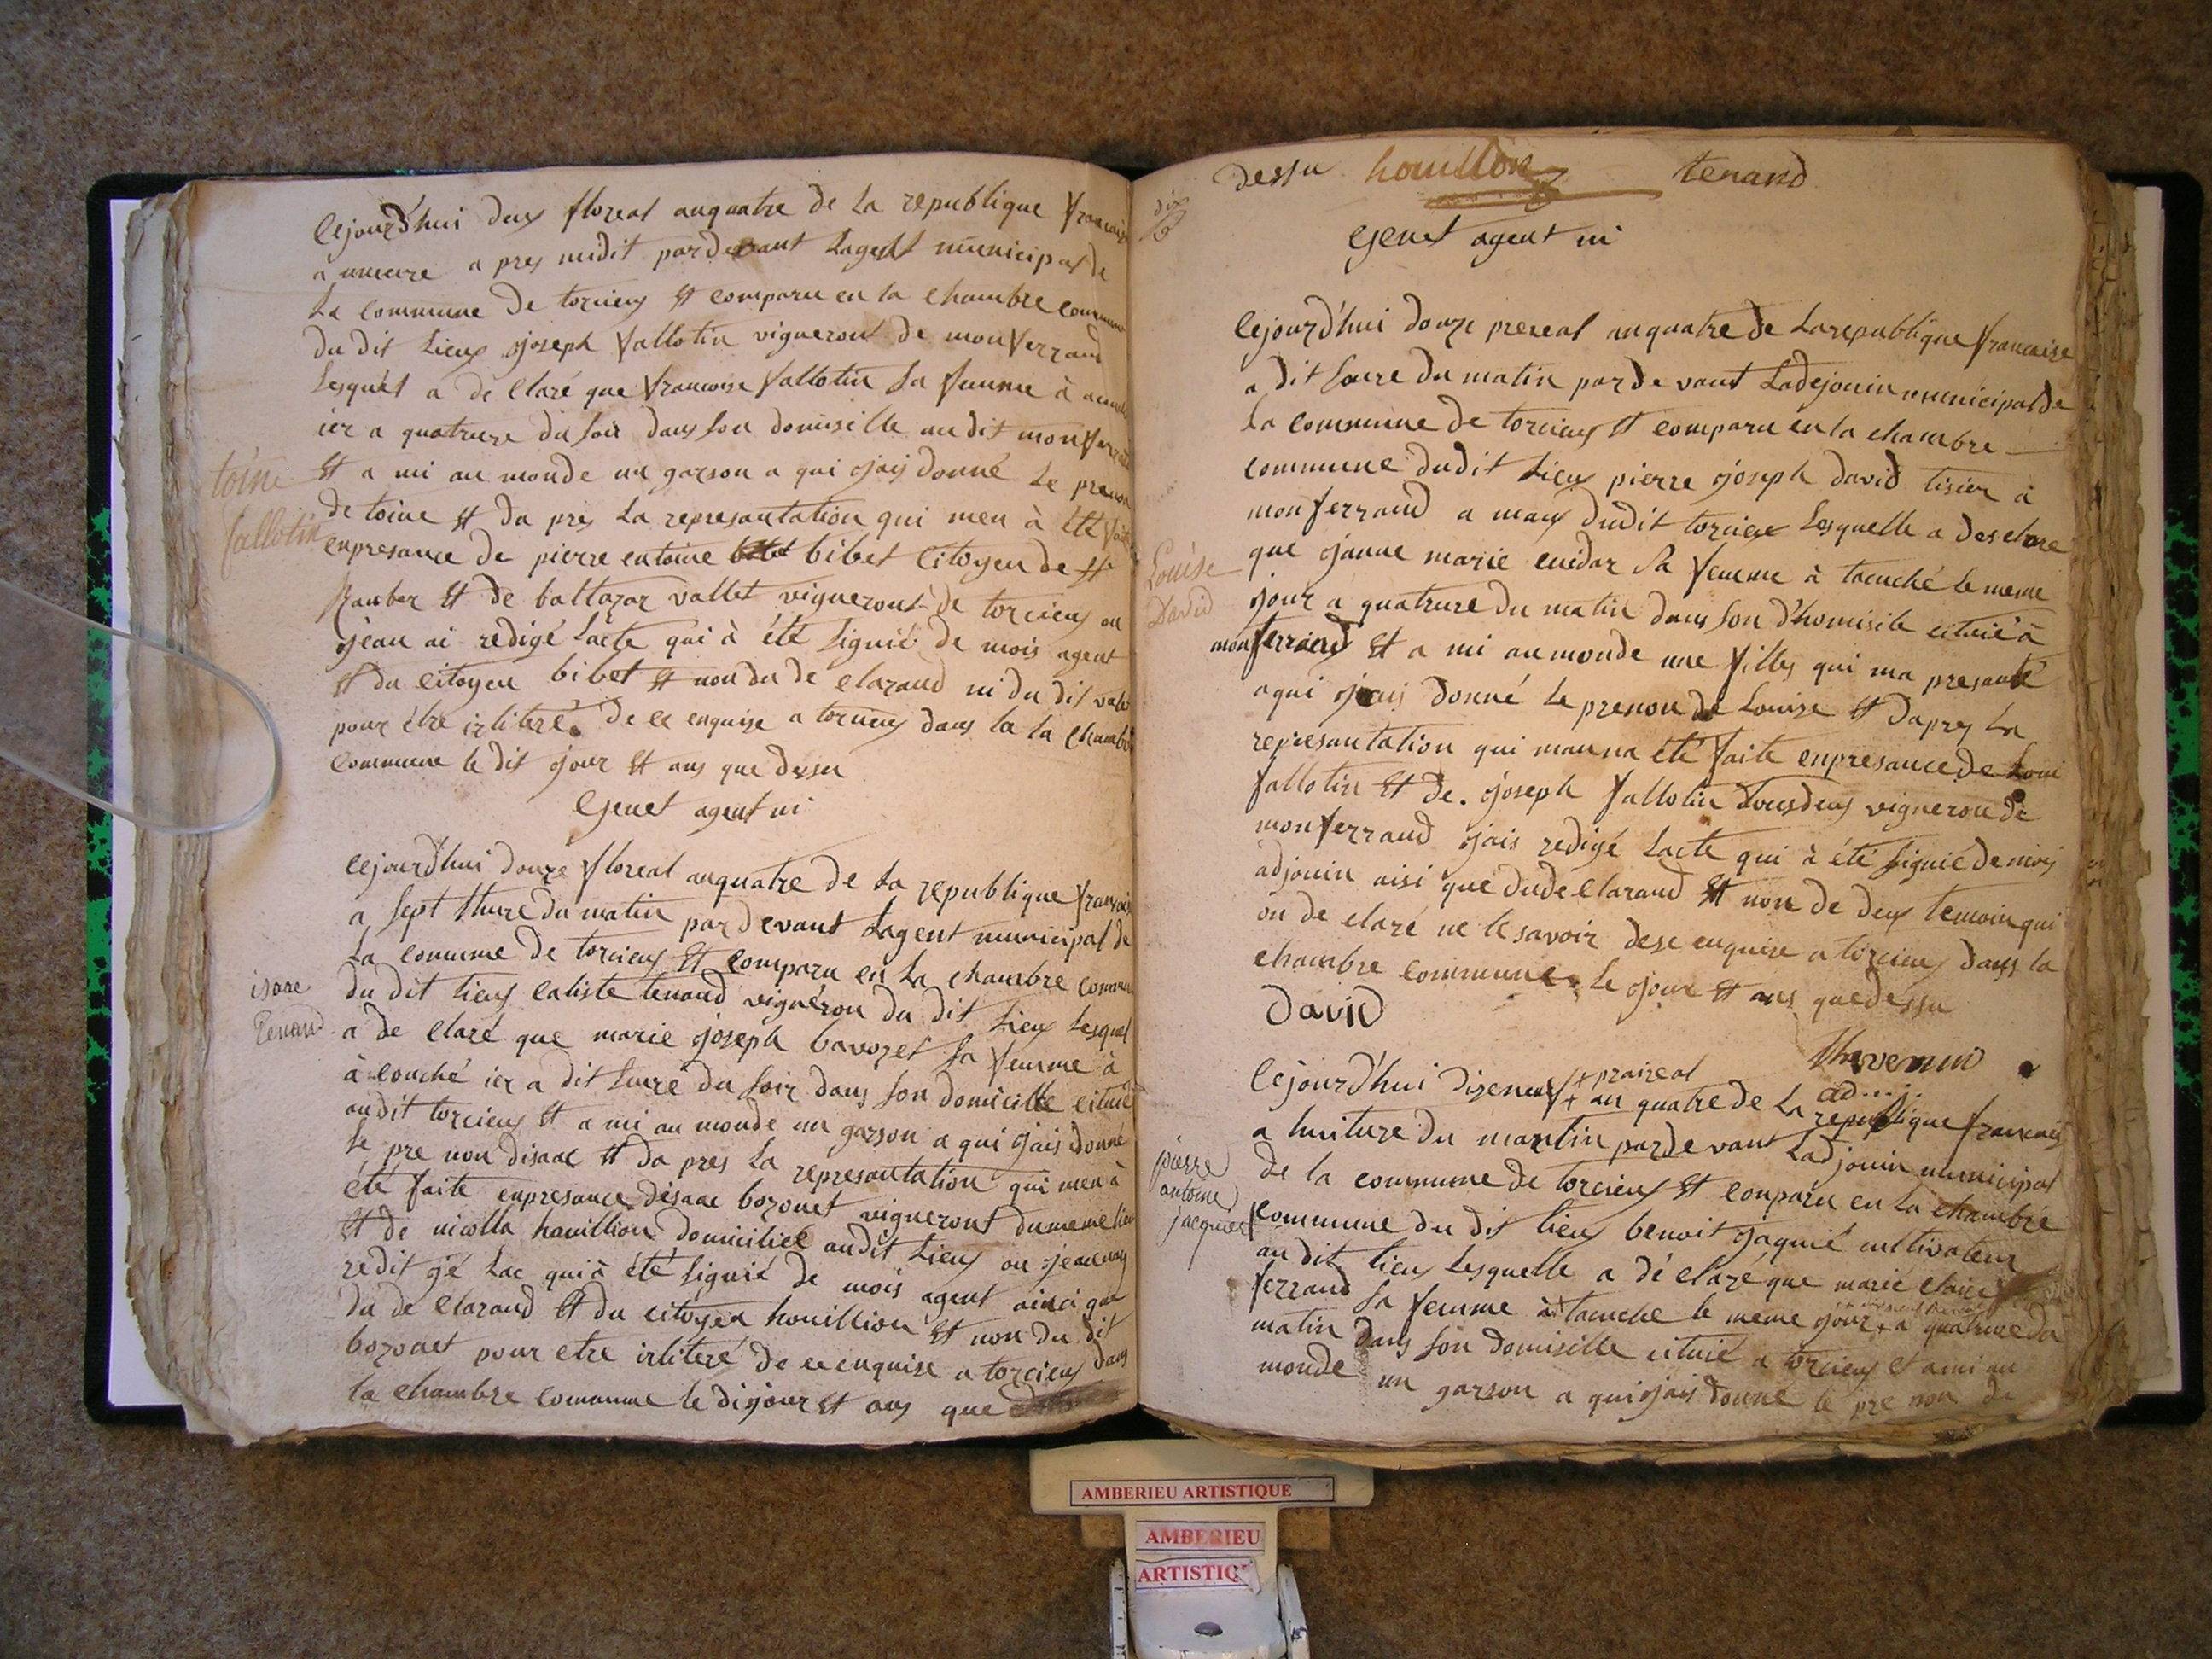 Cejourd'hui deux floreal anquatre de la republique francaise
a uneure a pres midit pardevant Lagent municipal de
La commune de torcieux et comparu en la chambre commune
du dit Lieux joseph fallotin vigneront de monferrand
Lesquel a de claré que francoise fallotin sa femme à
ier a quatrure du soir dans son domisille audit monferrand
et a mi au monde un garson a qui jais donné Le prenon
toine
fallotin
de toine et da pres La represantation qui men à été fait
enpresance de pierre entoine bibet Citoyen de st
Rauber et de baltazar vallet vigneront de torcieux ou
jean ai redigé Lacte qui à été signié de mois agent
et du citoyen bibet et non du de clarand ni du dit
pour étre irliteré. De ce enquise a torcieux dans la la chambre
Commune le dit jour et ans que dessu
Genet agent ni
Cejourd'hui douze floreal anquatre de La republique francaise
a sept thure du matin pardevant Lagent municipal de
La comume de torcieux et comparu en La chambre comune
isaac
tenand
du dit lieux caliste tenand vignéron du dit Lieux Lesquel
a de claré que marie joseph bavozet sa femme à
à couché ier a dit heure du soir dans son domicille cituié
audit torcieux et a mi au monde un garson a qui jais donné
Le pre non disaac et da pres La represantation qui men à
été faite enpresance disaac bozonet vigneront dumeme lieu
et de nicolla houillion domicilié audit Lieux ou jean
redit gé Lac qui à été signié de mois agent ainci que
du de clarand et du citoyen houillion et non du dit
bozonet pour etre irliteré de ce enquise a torcieux dans
la chambre comunne le dijour et ans que
dix
dessu houillon tenand
Genet agent ni
Cejourd'hui douze prereal anquatre de Larepublique francaise
a dit heure du matin pardevant Ladejouin municipal de
La commune de torcieux et comparu en la chambre
commune dudit Lieux pierre joseph david tisier à
monferrand a maux dudit torcieux Lesquelle a desclare
que janne marie cuidar sa femme à tacuché le meme
Louise
David
jour a quatrure du matin dans son d'homisile cituié à
monferrand et a mi au monde une filles qui ma presanté
aqui jais donné le prenon de Louise et dapres La
represantation qui manna été faite enpresance de Loui
fallotin et de. joseph fallotin tousdeux vigneron de
monferrand jais redigé Lacte qui à été signié de mois
adjouin aisi que dude clarand et non de deux temoin qui
on de claré ne le savoir dese enquise a torcieux dans la
chambre commune. Le jour et ans que dessu
David
thevenin
ad....
Cejourd'hui dizeneuf + praireal
+ an quatre de La republique francais
a huiture du mantin pardevant Ladjouin municipal
pierre
antoine
jacquies
de la commume de torcieux et conparu en La chambre
commune du dit lieux benoit jaquié cultivateur
au dit lieux Lesquelle a dé claré que marie claire
ferrand sa femme à tacuche le meme jour + a quatrure du
matin dans son domisille cituié a torcieux et a mi au
monde un garson a qui jais donne le pre non de
AMBERIEU ARTISTIQUE
AMBERIEU
ARTISTIQ